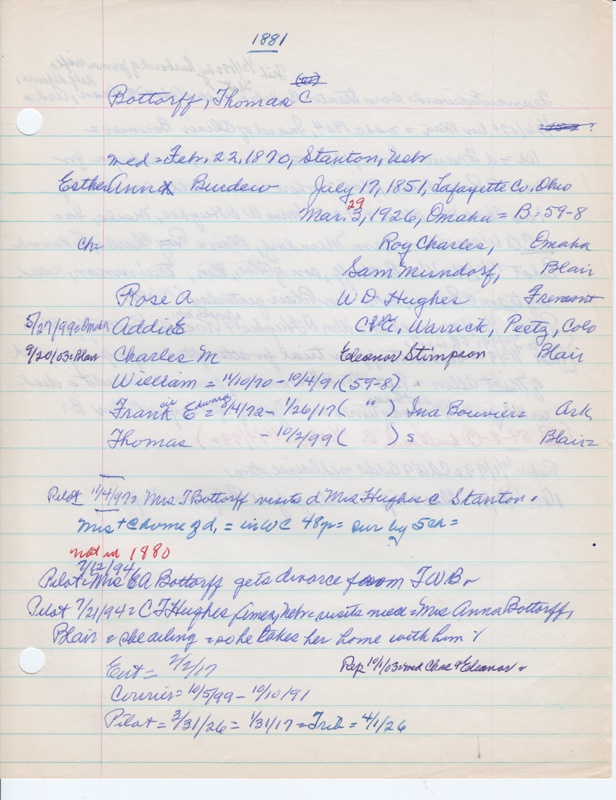 1881
Bottorff, Thomas C
med = Feb. 22, 1870, Stanton, Nebr
Esther Ann Burdew July 17, 1851, Lafayette Co, Ohio
29
Mar. 3, 1926, Omaha = B. 59-8
ch = Roy Charles, Omaha
Sam Mundorf, Blair
Rose A W D Hughes Fremont
5/27/99 = Omaha Addie E Warrick, Peetz, Colo
9/20/03 = Blair Charles M Eleanor Stimpson Blair
William = 11/10/70 - 10/4/91 (59-8)
Frank E = 2/4/72 - 1/26/17 ( " ) Ina Bouvier Ark
Thomas - 10/2/99 ( ) s Blair =
Pilot 11/4/97 = Mrs T Bottorff visits d Mrs Hughes C Stanton.
Mrs + C home = in WC 48 yr = sur by 5 ch =
not in 1880
7/12/94
Pilot = Mrs EA Bottorff gets divorce from T W B
Pilot 7/21/94 = C T Hughes, Nebr = visits = Mrs Anna Bottorff,
Blair = she ailing = so he takes her home with him
Ent = 2/2/17 Rep 10/1/03 = med Chas & Eleanor
Courier = 10/5/99 - 10/10/91
Pilot = 3/31/26 = 1/31/17 = Trib = 4/1/26